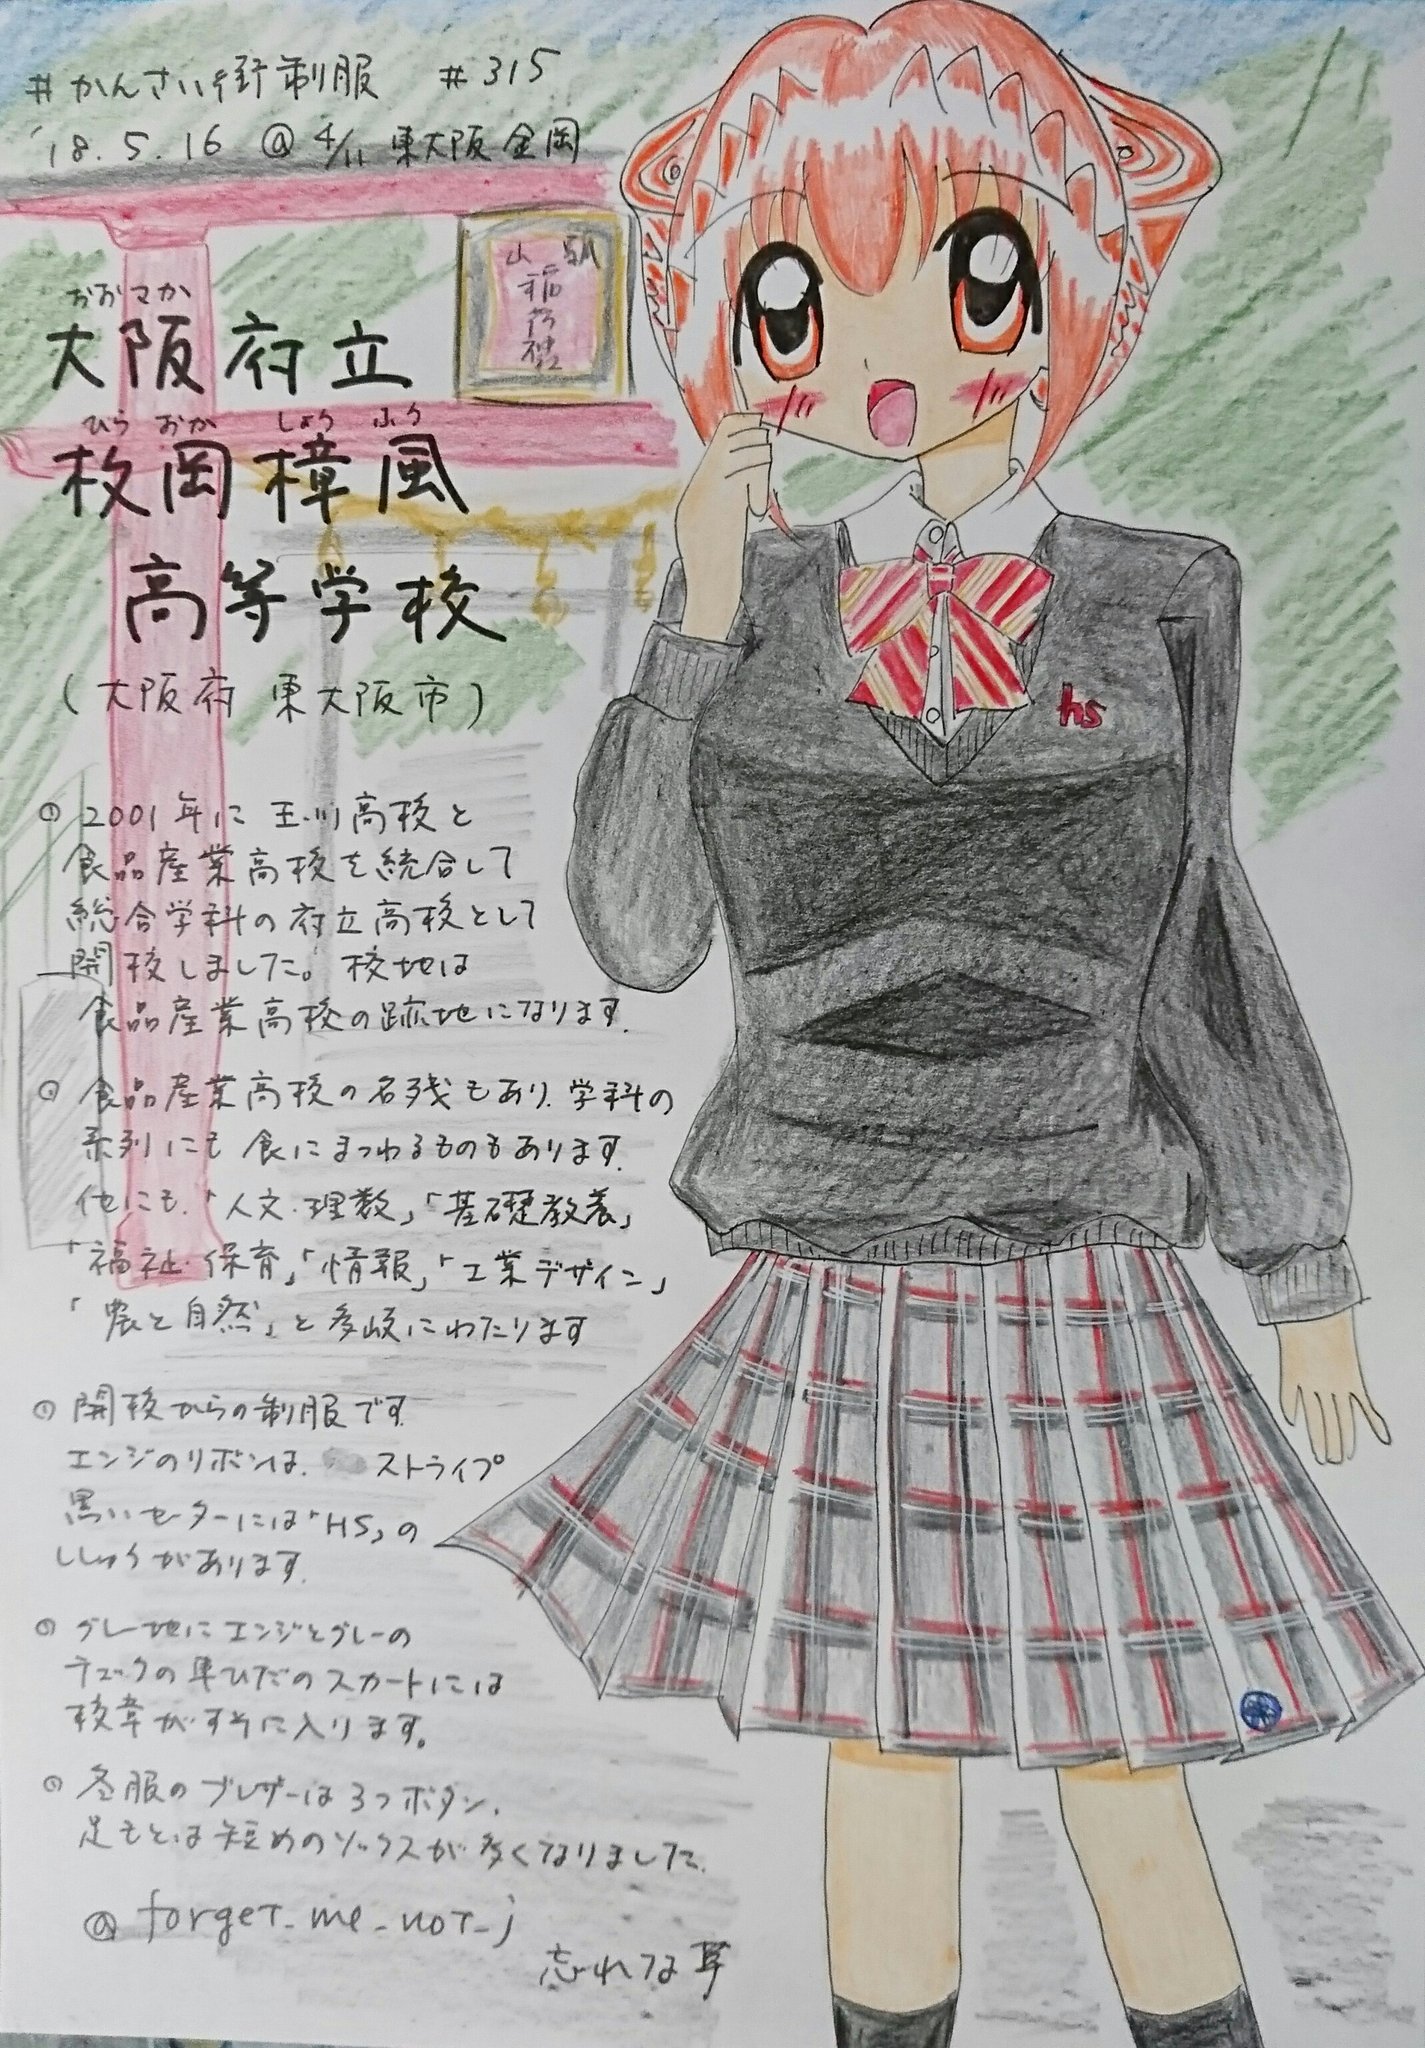 #かんさい街制服 #315
'18.5.16 @ 4/11 東大阪金岡
おおさか
大阪府立
ひらおか しょうふう
枚岡樟風
高等学校
(大阪府 東大阪市)
2001年に玉川高校と
食品産業高校を統合して
総合学科の府立高校として
開校しました。校地は
食品産業高校の跡地になります.
食品産業高校の名残もあり.学科の
系列にも食にまつわるものもあります.
他にも.「人文・理数」「基礎教養」
「福祉・保育」「情報」「工業デザイン」
「農と自然」と多岐にわたります
開校からの制服です.
エンジのリボンは、 ストライプ
黒いセーターには「HS」の
ししゅうがあります.
グレー地にエンジとグレーの
チェックの車ひだのスカートには
校章がすそに入ります。
冬服のブレザーは3つボタン.
足もとは短めのソックスが多くなりました.
@forget_me_not_j
忘れな草
稲荷社
hs